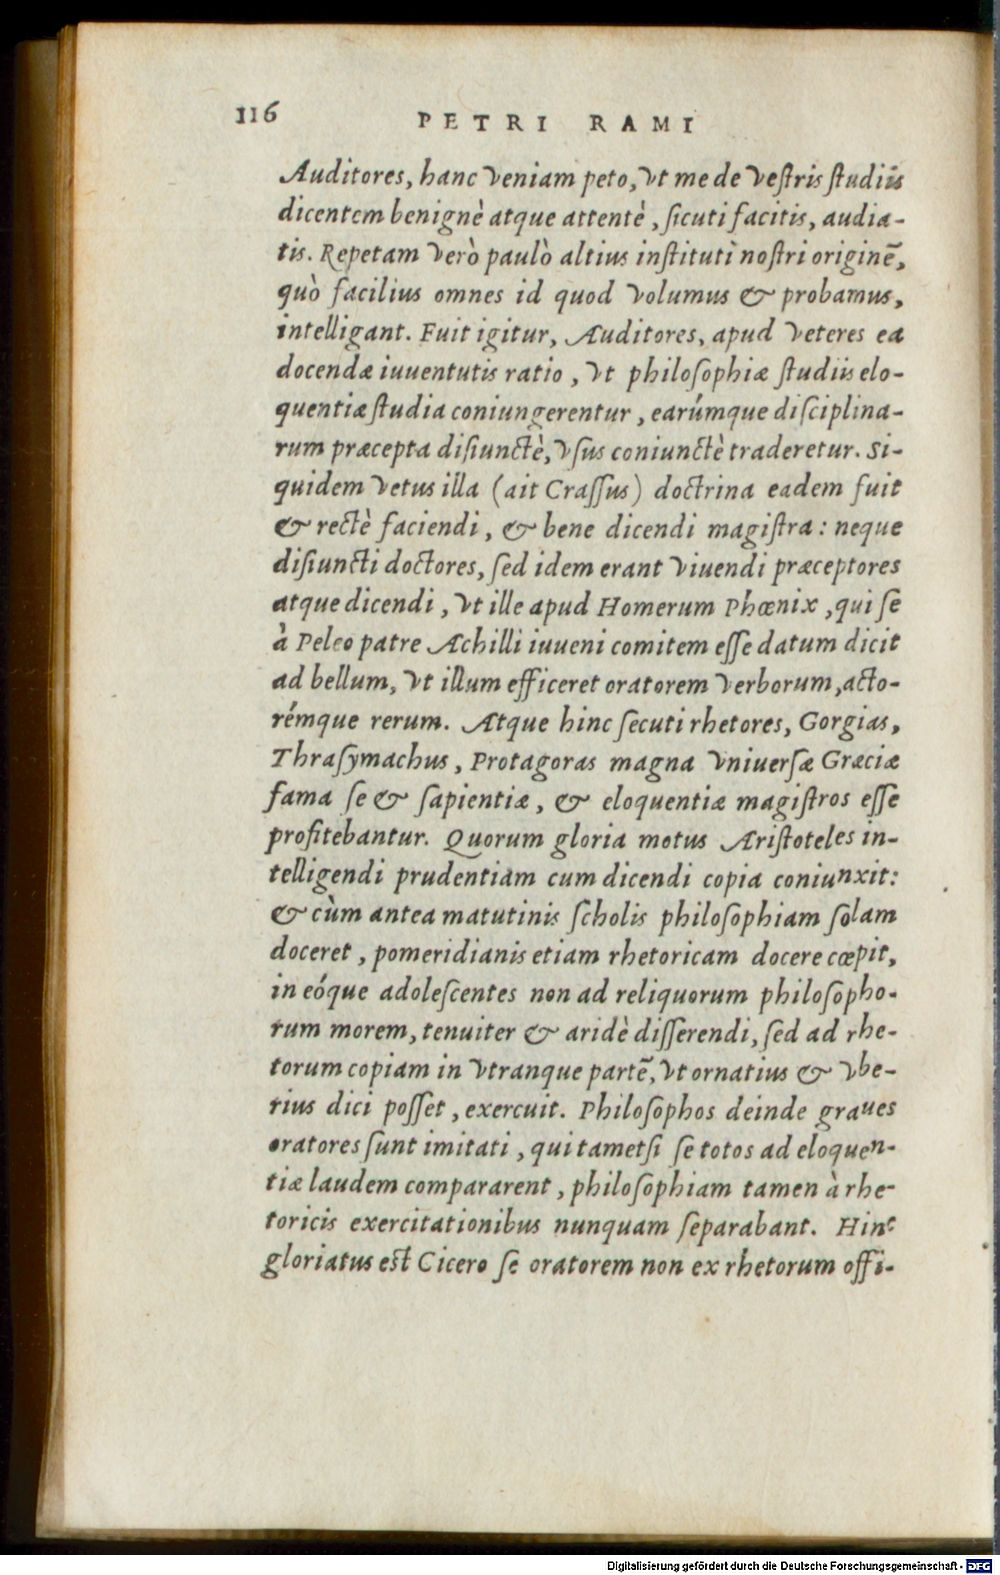 116 PETRI RAMI
Auditores, hanc veniam peto, vt me de vestris studiis
dicentem benignè atque attentè, sicuti facitis, audia-
tis. Repetam verò paulò altius instituti nostri originē,
quò facilius omnes id quod volumus & probamus,
intelligant. Fuit igitur, Auditores, apud veteres ea
docendæ iuuentutis ratio, vt philosophiæ studiis elo-
quentiæ studia coniungerentur, earúmque disciplina-
rum præcepta disiunctè, vsus coniunctè traderetur. Si-
quidem vetus illa (ait Crassus) doctrina eadem fuit
& rectè faciendi, & bene dicendi magistra: neque
disiuncti doctores, sed idem erant viuendi præceptores
atque dicendi, vt ille apud Homerum Phœnix, qui se
à Peleo patre Achilli iuueni comitem esse datum dicit
ad bellum, vt illum efficeret oratorem verborum, acto-
rémque rerum. Atque hinc secuti rhetores, Gorgias,
Thrasymachus, Protagoras magna vniuersæ Græciæ
fama se & sapientiæ, & eloquentiæ magistros esse
profitebantur. Quorum gloria motus Aristoteles in-
telligendi prudentiam cum dicendi copia coniunxit:
& cùm antea matutinis scholis philosophiam solam
doceret, pomeridianis etiam rhetoricam docere cœpit,
in eóque adolescentes non ad reliquorum philosopho-
rum morem, tenuiter & aridè disserendi, sed ad rhe-
torum copiam in vtranque partē, vt ornatius & vbe-
rius dici posset, exercuit. Philosophos deinde graues
oratores sunt imitati, qui tametsi se totos ad eloquen-
tiæ laudem compararent, philosophiam tamen à rhe-
toricis exercitationibus nunquam separabant. Hinc
gloriatus est Cicero se oratorem non ex rhetorum offi-
Digitalisierung gefördert durch die Deutsche Forschungsgemeinschaft - DFG